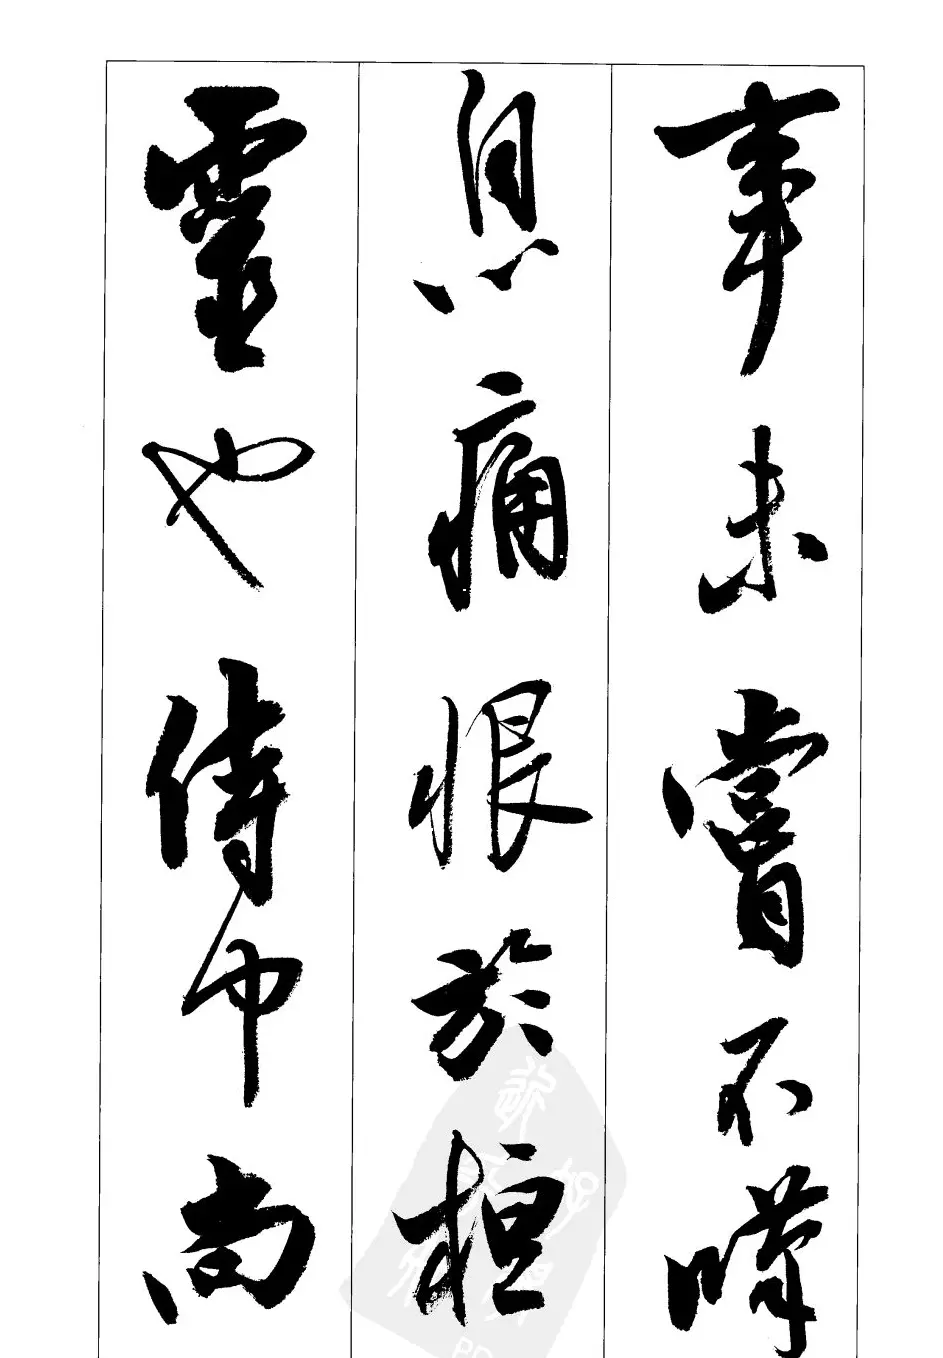 事未嘗不嘆
息痛恨於桓
靈也侍中尚